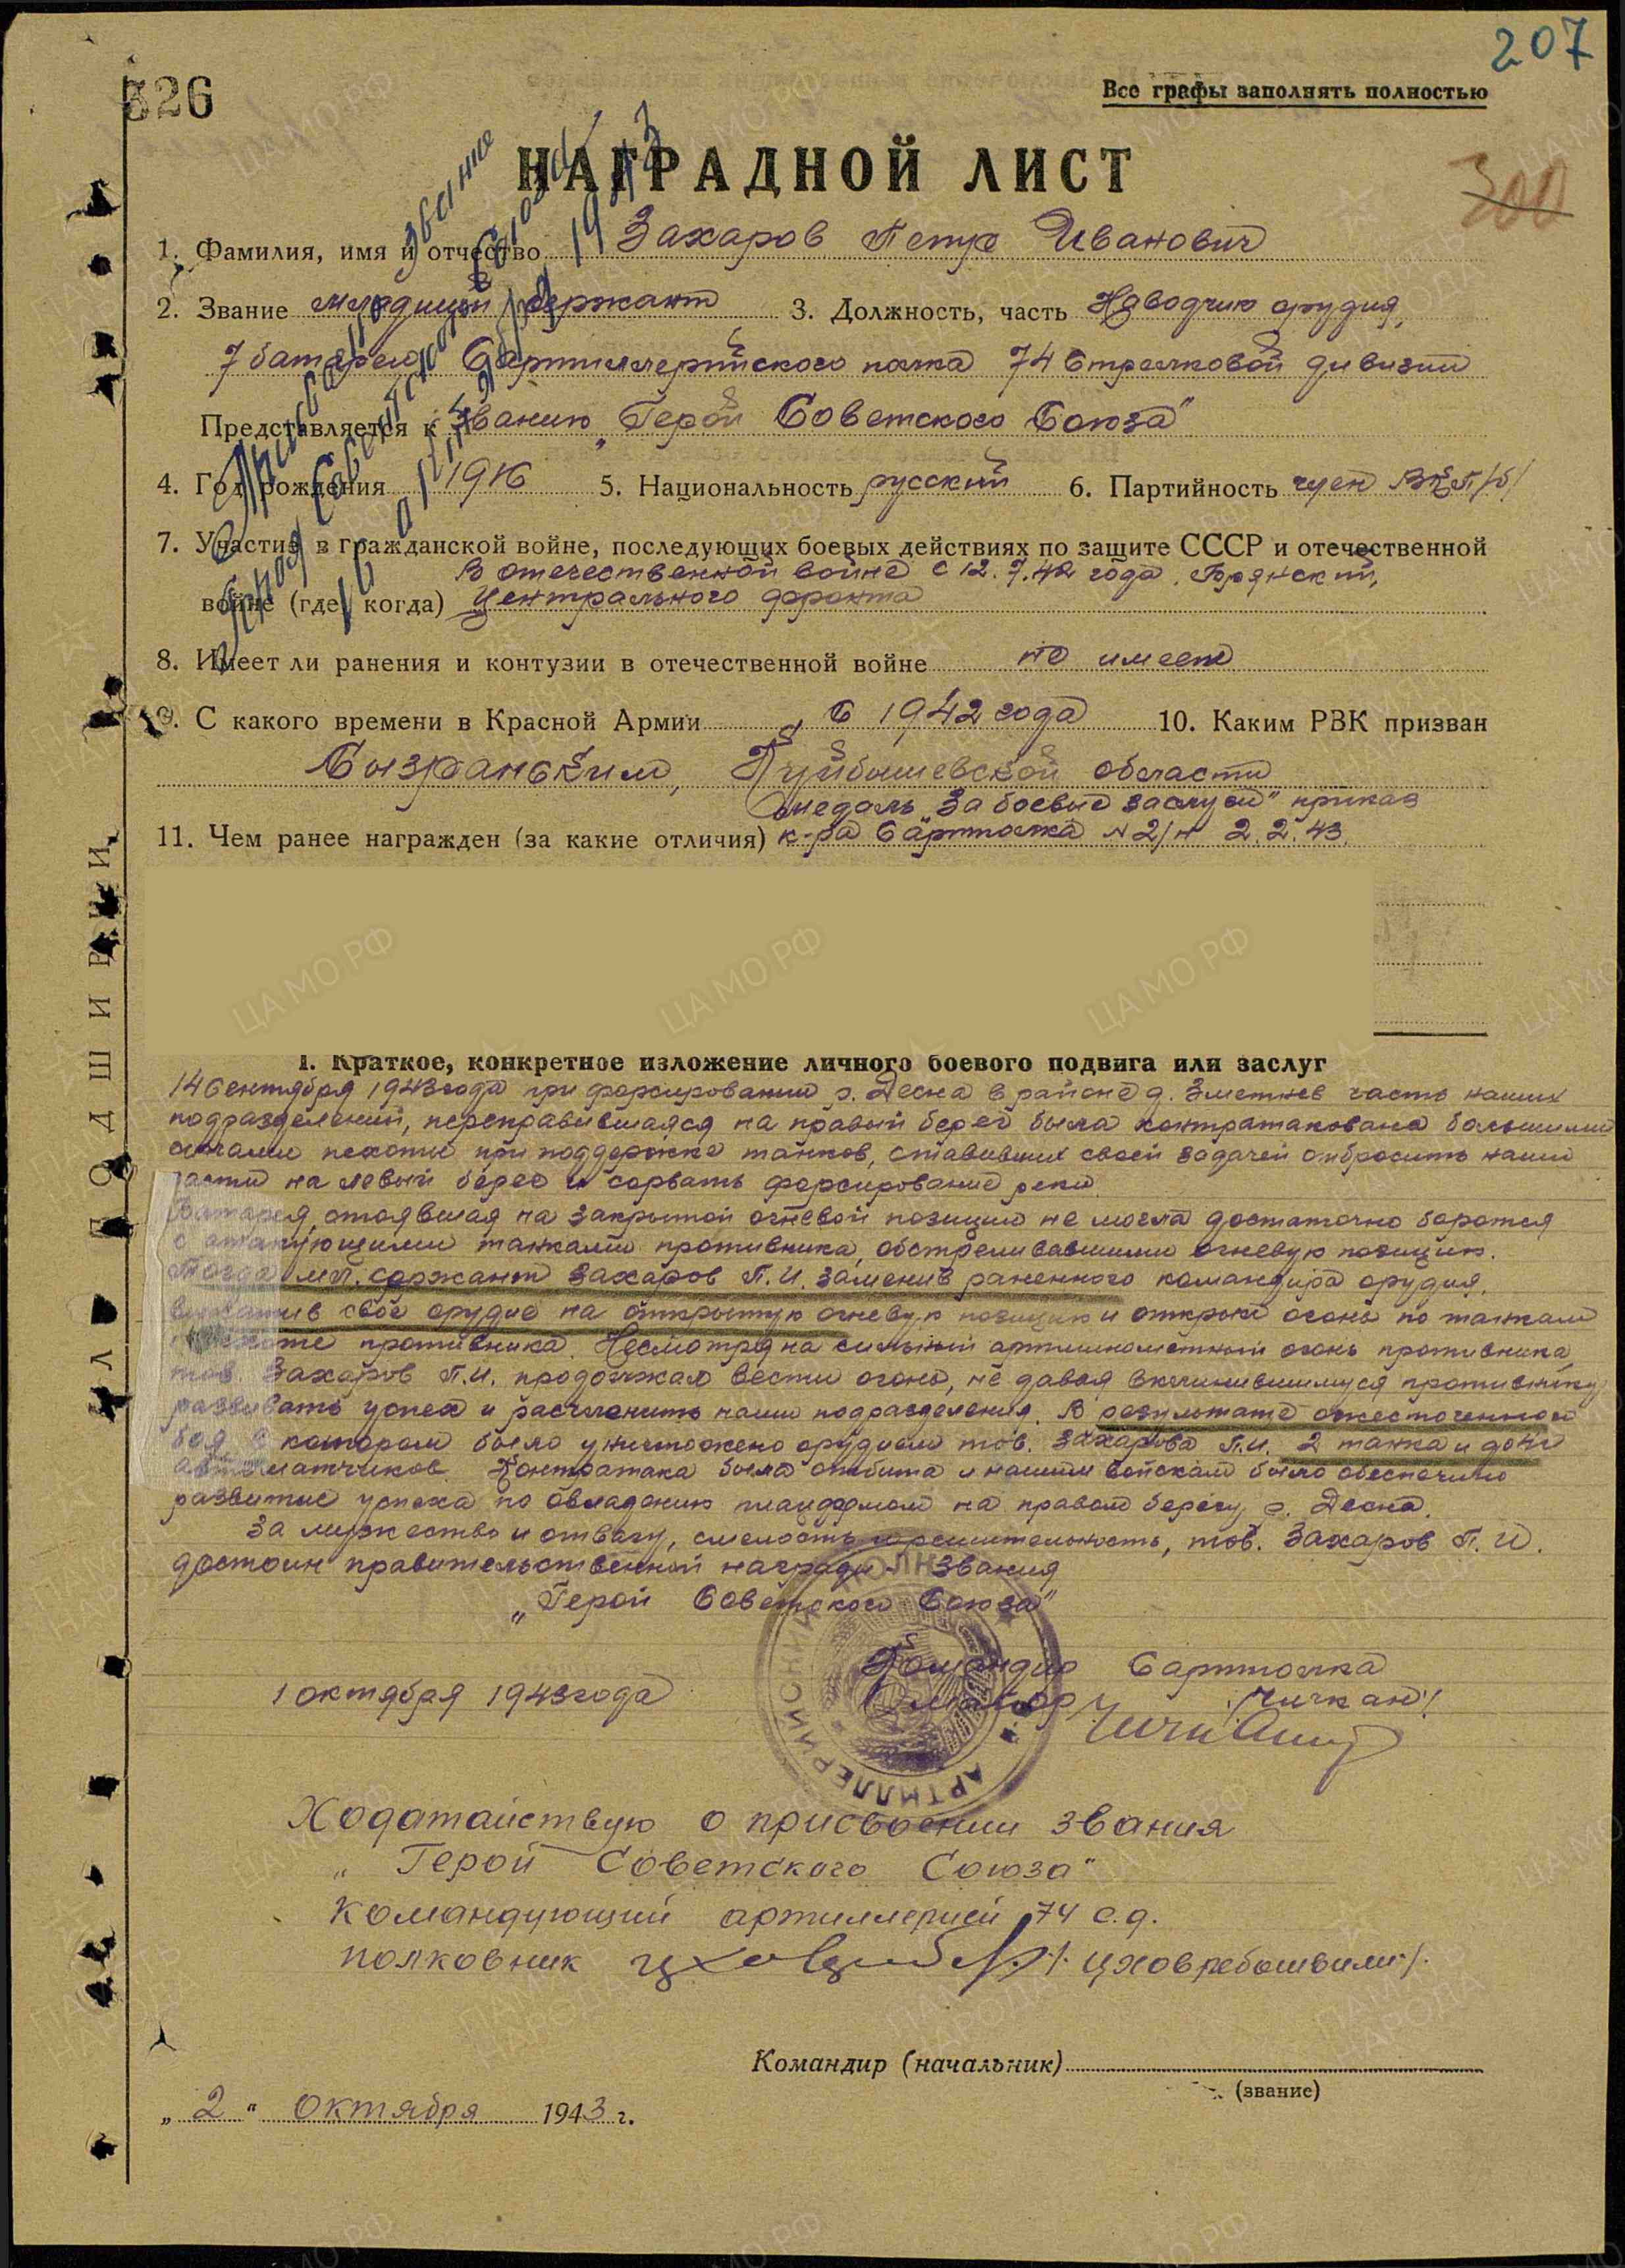 207
326
Все графы заполнять полностью
НАГРАДНОЙ ЛИСТ
300
1. Фамилия, имя и отчество Захаров Петр Иванович
2. Звание младший сержант 3. Должность, часть Наводчик орудия,
7 батареи 6 артиллерийского полка 74 Стрелковой дивизии
Представляется к званию „Герой Советского Союза"
4. Год рождения 1916 5. Национальность русский 6. Партийность член ВКП/б/
7. Участие в гражданской войне, последующих боевых действиях по защите СССР и отечественной
В отечественной войне с 12.7.42 года. Брянский,
войне (где, когда) Центрального фронта
8. Имеет ли ранения и контузии в отечественной войне не имеет
9. С какого времени в Красной Армии С 1942 года 10. Каким РВК призван
Сызранским, Куйбышевской области
медаль „За боевые заслуги" приказ
11. Чем ранее награжден (за какие отличия) к-ра 6 артполка №2/н 2.2.43.
Присвоено звание
Героя Советского Союза
16 октября 1943
ДЛЯ ПОДШИВКИ
1. Краткое, конкретное изложение личного боевого подвига или заслуг
14 Сентября 1943 года при форсировании р. Десна в районе д. часть наших
подразделений, переправившаяся на правый берег была контратакована большими
силами пехоты при поддержке танков, ставивших своей задачей отбросить наши
части на левый берег и сорвать форсирование реки.
Батарея, стоявшая на закрытой огневой позиции не могла достаточно боротся
с атакующими танками противника, обстреливавшими огневую позицию.
Тогда мл. сержант Захаров П.И. заменив раненного командира орудия,
выкатив свое орудие на открытую огневую позицию и открыл огонь по танкам
и пехоте противника. Несмотря на сильный артминометный огонь противника,
тов. Захаров П.И. продолжал вести огонь, не давая вклинившимуся противнику
развивать успех и расчленить наши подразделения. В результате ожесточенного
боя, в котором было уничтожено орудием тов. Захарова П.И. 2 танка и до
автоматчиков. Контратака была отбита и нашим войскам было обеспечено
развитие успеха по овладению плацдармом на правом берегу р. Десна.
За мужество и отвагу, смелость и решительность, тов. Захаров П.И.
достоин правительственной награды - звания
„Герой Советского Союза"
Командир 6 артполка
1 октября 1943 года майор /Чичкан/
АРТИЛЛЕРИЙСКИЙ ПОЛК
Ходатайствую о присвоении звания
„Герой Советского Союза"
Командующий артиллерией 74 с.д.
полковник /Цховребашвили/.
Командир (начальник)
(звание)
„2" Октября 1943 г.
ЦАМО РФ
ПАМЯТЬ НАРОДА